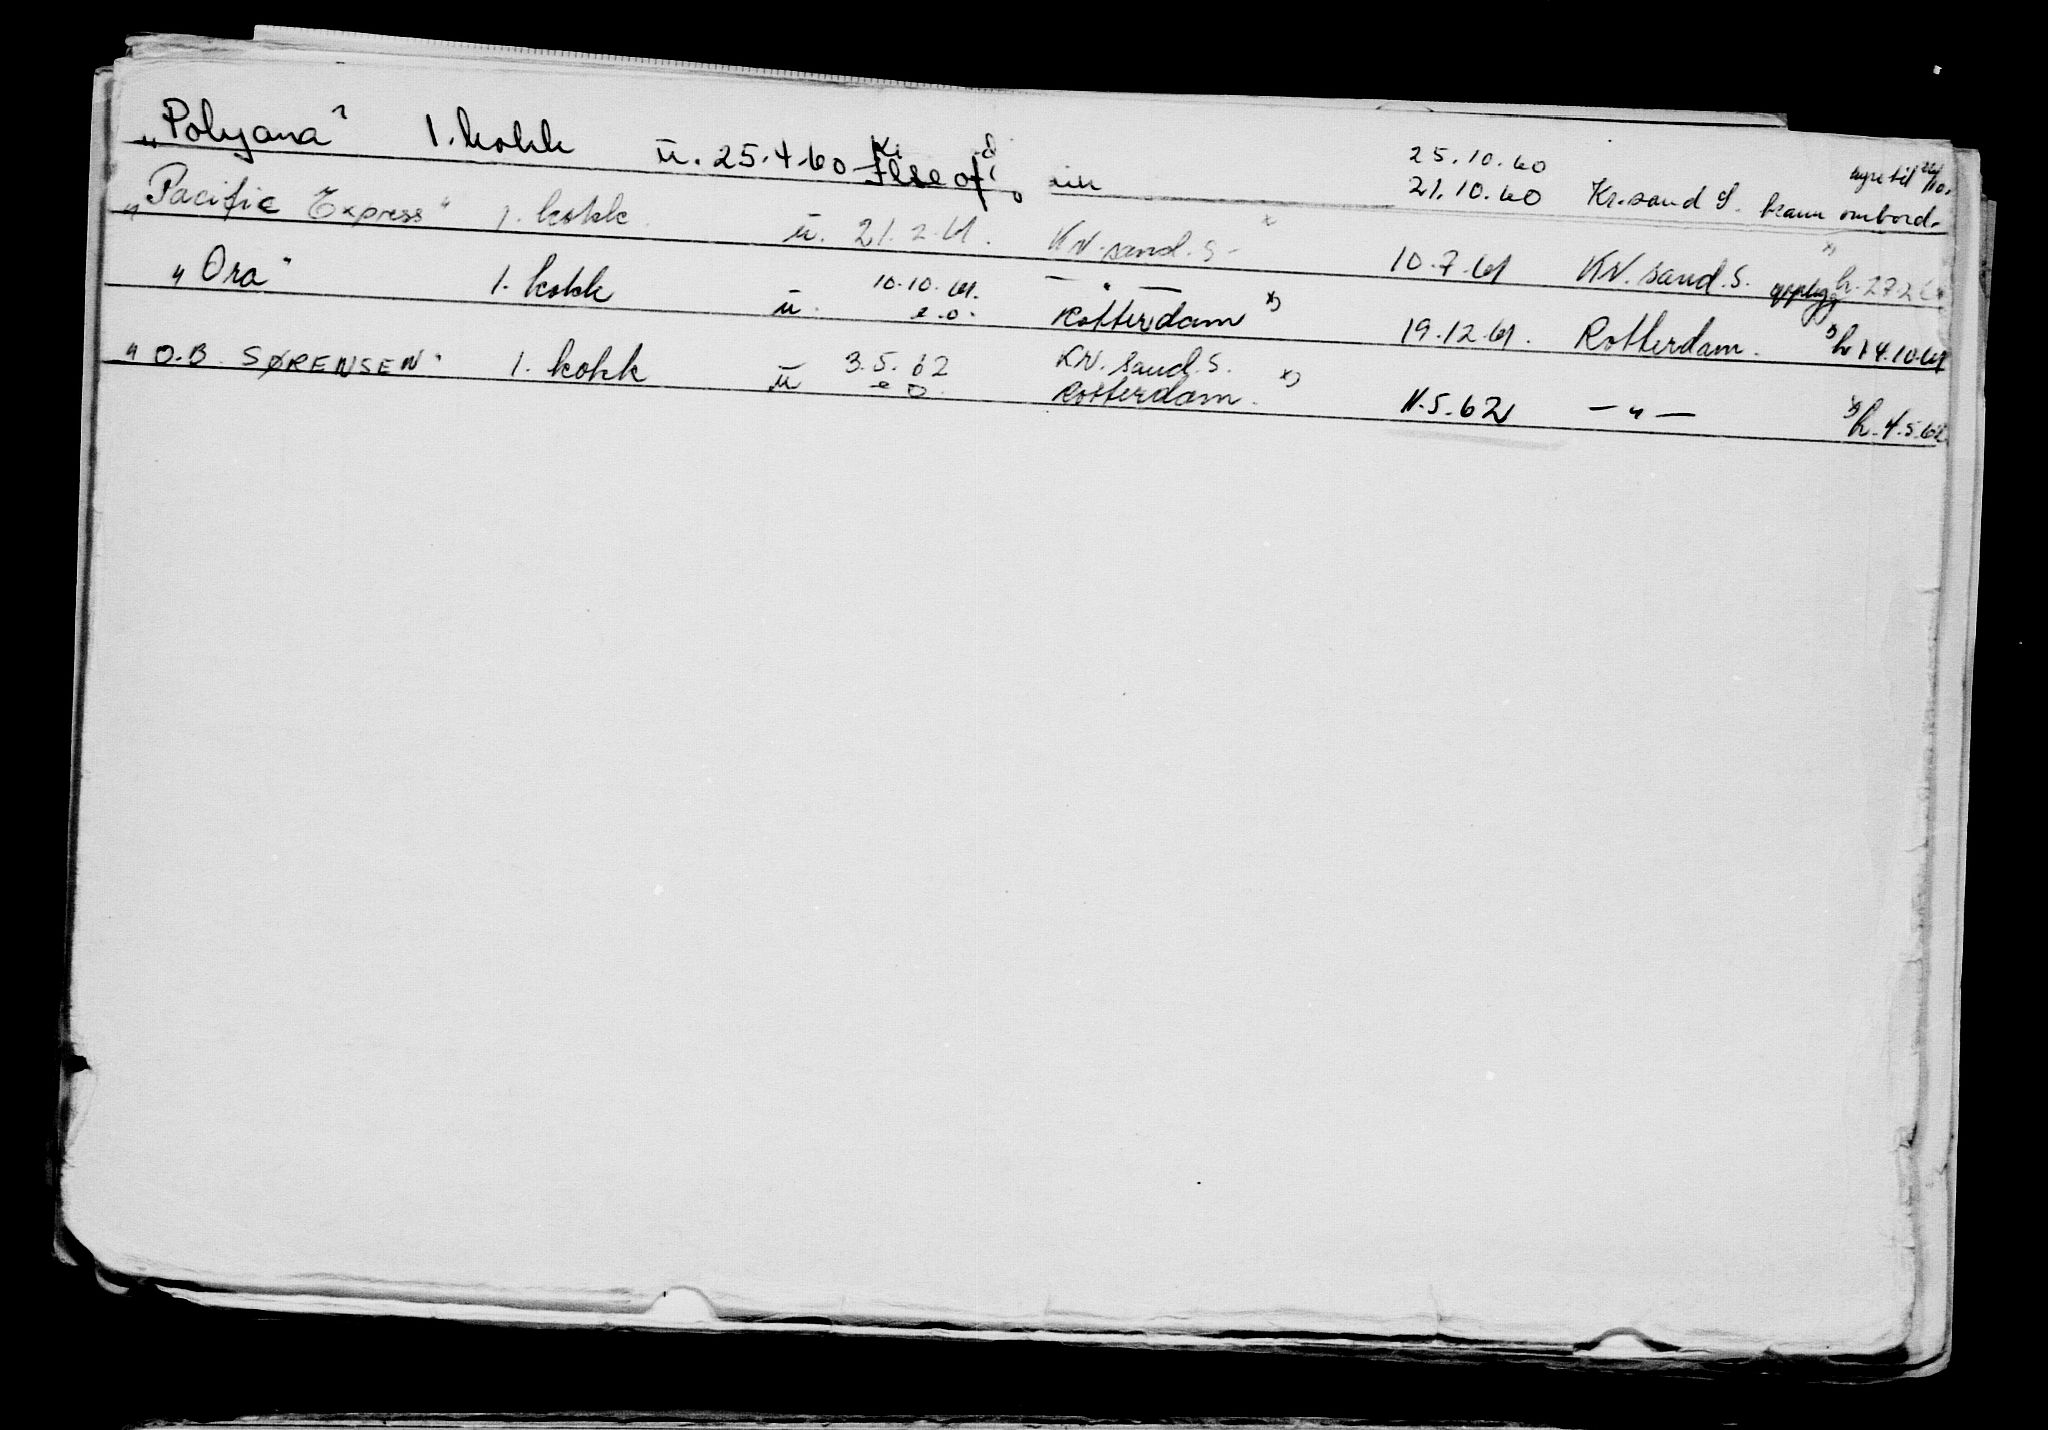 „Polyana” 1. kokk u. 25.4.60
25.10.60
21.10.60 Kr.sand S. ombord.
„Pacific Express” 1. kokk. u. 21.2.61. KR.sand.S. x) 10.7.61 KR.sand.S. x)
„Ora” 1. kokk u. 10.10.61. — " —
e.o. Rotterdam x) 19.12.61. Rotterdam. x) h 14.10.61
„O.B. SØRENSEN” 1. kokk u 3.5.62 KR.sand.S.
e o. Rotterdam. x) 11.5.62 — " — x) h. 4.5.62